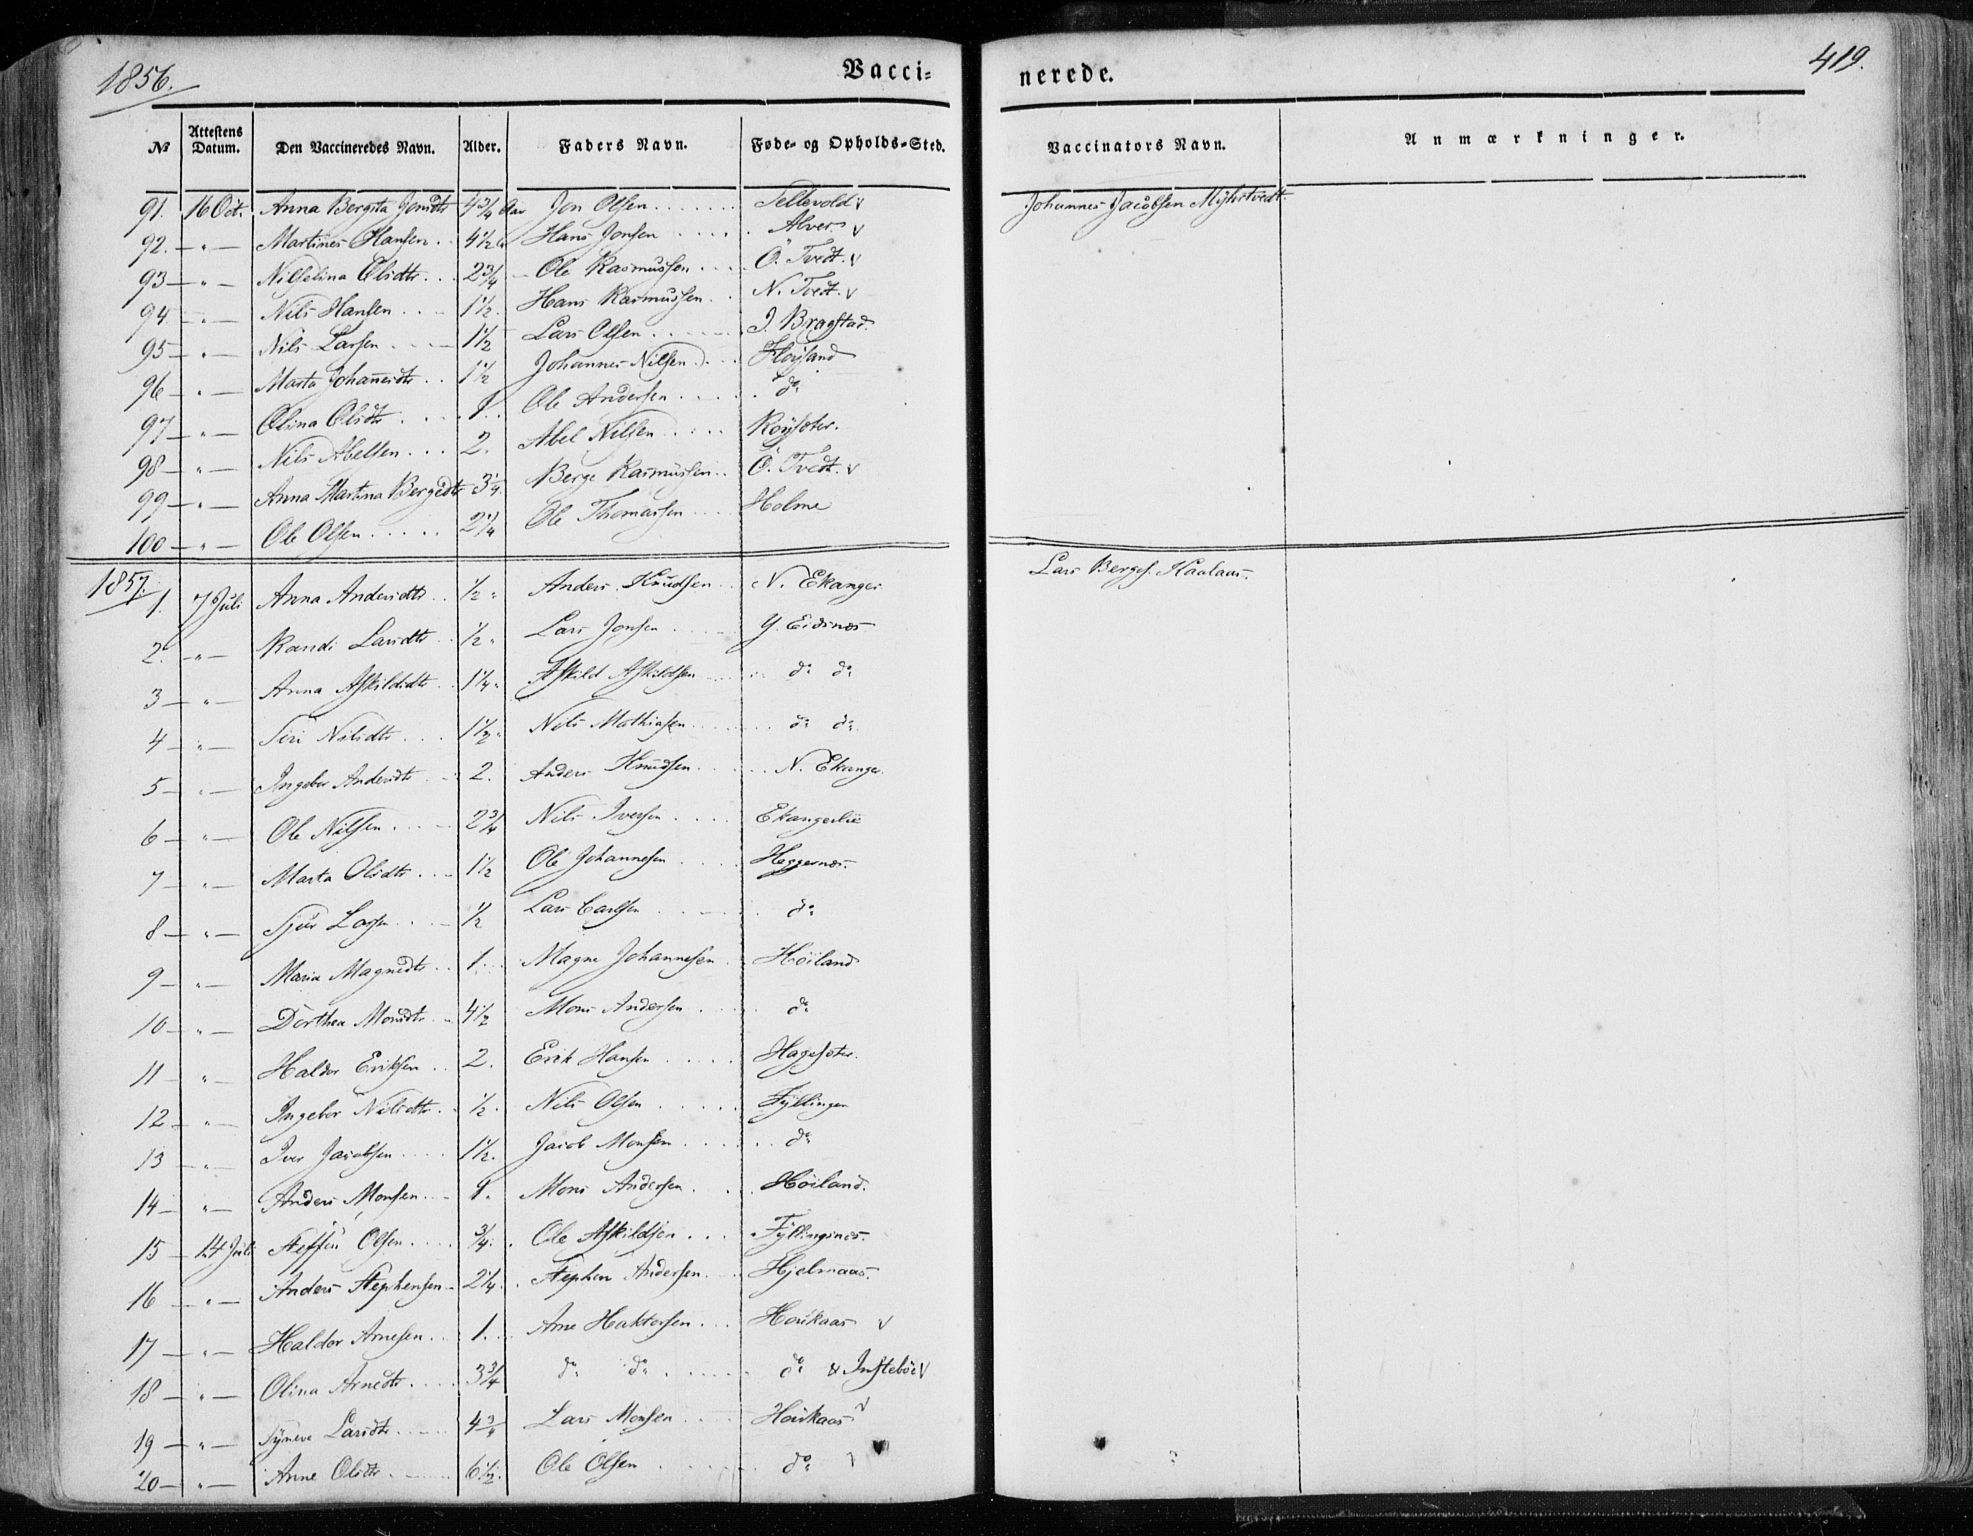 1856.
Vacci-
nerede.
419.
№ Attestens Datum. Den Vaccineredes Navn. Alder. Faders Navn. Føde- og Opholds-Sted. Vaccinators Navn. Anmærkninger.
91. 16 Oct. Anna Bergita Jonsdtr 4 3/4 Aar Jon Olsen Tellevold v Johannes Jacobsen
92. -"- Martines Hansen 4 1/2 Hans Jonsen Alver v
93 -"- Nilselina Olsdtr 2 3/4 Ole Rasmussen Ö. Tvedt. v
94 -"- Nils Hansen 1 1/2 Hans Rasmussen N. Tvedt. v
95 -"- Nils Larsen 1 1/2 Lars Olsen I. Bragstad
96 -"- Marta Johannesdtr 1 1/2 Johannes Nilsen Höyland
97 -"- Olina Olsdtr 1 Ole Andersen do
98 -"- Nils Abelsen 2. Abel Nilsen Röyseter.
99 -"- Anna Martina Bergedtr 3 1/4 Berge Rasmussen Ö. Tvedt. v
100 -"- Ole Olsen 2 1/4 Ole Thomassen Holme
1857.
1. 7 Juli Anna Andersdtr 1/2 " Anders Knudsen N. Ekanger Lars Berges. Kaalaas.
2. -"- Randi Larsdtr 1/2 " Lars Jonsen Y. Eidsnes
3 -"- Anna Askildsdtr 1 1/4 " Askild Askildsen do do
4 -"- Siri Nilsdtr 1 1/2 " Nils Mathiasen do do
5 -"- Ingebor Andersdtr 2. Anders Knudsen N. Ekanger
6 -"- Ole Nilsen 2 3/4 Nils Iversen Ekangerlie
7 -"- Marta Olsdtr 1 1/2 Ole Johannesen Heggernes.
8 -"- Sjur Larsen 1/2 Lars Carlsen do
9 -"- Maria Magnedtr 1. Magne Johannesen Höiland
10 -"- Dorthea Monsdtr 4 1/2 Mons Andersen do
11 -"- Haldor Eriksen 2. Erik Hansen Hageseter.
12 -"- Ingebor Nilsdtr 1/2. Nils Olsen Fyllingen
13 -"- Iver Jacobsen 1 1/2. Jacob Monsen do
14 -"- Anders Monsen 1. Mons Andersen Höiland.
15 14 Juli Steffen Olsen 3/4. Ole Askildsen Fyllingsnes.
16 -"- Anders Stephensen 2 1/4. Stephen Andersen Hjelmaas.
17 -"- Haldor Arnesen 1. Arne Haktorsen Hoükaas v
18 -"- Olina Arnedtr 3 3/4 do do do & Insteböe v
19 -"- Syneve Larsdtr 4 3/4 Lars Monsen Hoükaas v
20 -"- Anne Olsdtr 6 1/2. Ole Olsen do v